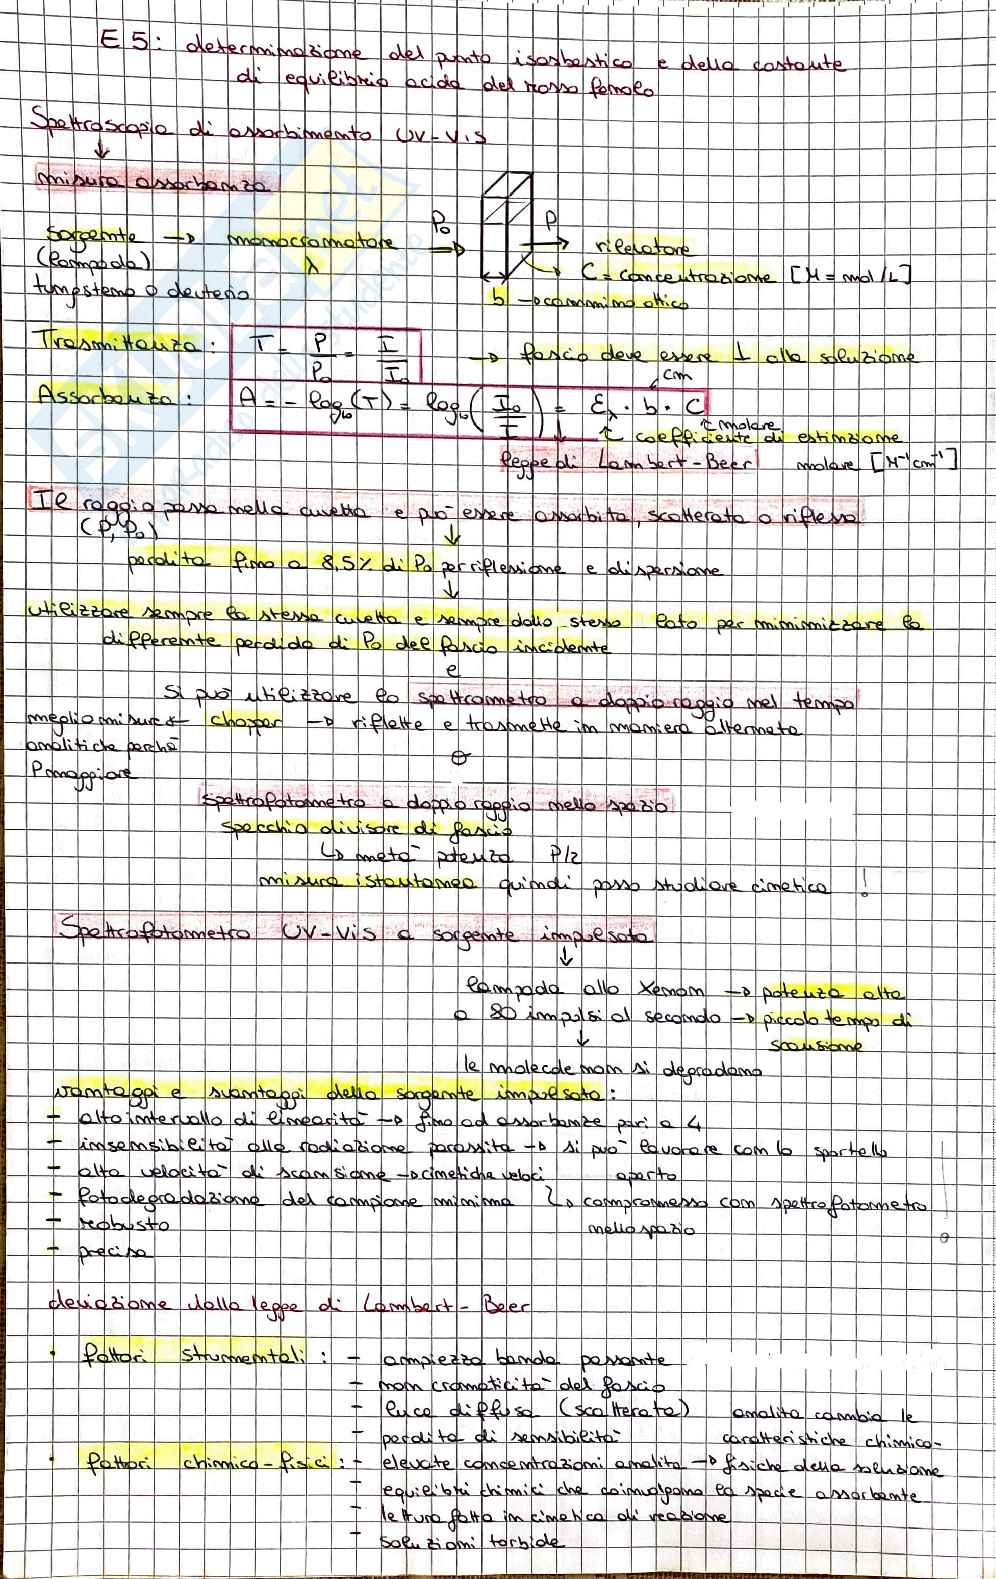 E5: determinazione del punto isosbestico e della costante
di equilibrio acido del rosso fenolo
Spettroscopia di assorbimento UV-Vis
↓
misura assorbanza
sorgente → monocromatore P₀ → P → rilevatore
(lampada) λ C = concentrazione [M = mol/L]
tungsteno o deuterio b → cammino ottico
Trasmittanza: T = P/P₀ = I/I₀ → fascio deve essere ⊥ alla soluzione
cm
Assorbanza: A = - log₁₀(T) = log₁₀(I₀/I) = ελ · b · C
molare
coefficiente di estinzione
legge di Lambert-Beer molare [M⁻¹cm⁻¹]
Il raggio passa nella cuvetta e può essere assorbito, scatterato o riflesso
(P, P₀) ↓
perdita fino a 8,5% di P₀ per riflessione e dispersione
↓
utilizzare sempre la stessa cuvetta e sempre dallo stesso lato per minimizzare la
differente perdida di P₀ del fascio incidente
e
si può utilizzare lo spettrometro a doppio raggio nel tempo
meglio misure ← chopper → riflette e trasmette in maniera alternata
analitiche perchè
P maggiore
o
spettrofotometro a doppio raggio nello spazio
specchio divisore di fascio
↳ metà potenza P/2
misura istantanea quindi posso studiare cinetica !
Spettrofotometro UV-Vis a sorgente impulsata
↓
lampada allo Xenon → potenza alta
a 80 impulsi al secondo → piccolo tempo di
↓ scansione
le molecole non si degradano
vantaggi e svantaggi della sorgente impulsata:
- alto intervallo di linearità → fino ad assorbanze pari a 4
- insensibilità alla radiazione parassita → si può lavorare con lo sportello
- alta velocità di scansione → cinetiche veloci aperto
- fotodegradazione del campione minima ↳ compromesso con spettrofotometro
- robusto nello spazio
- preciso
deviazione dalla legge di Lambert-Beer
· fattori strumentali: - ampiezza banda passante
- non cromaticità del fascio
- luce diffusa (scatterata) analita cambia le
- perdita di sensibilità caratteristiche chimico-
· fattori chimico-fisici: - elevate concentrazioni analita → fisiche della soluzione
- equilibri chimici che coinvolgono la specie assorbente
- lettura fatta in cinetica di reazione
- soluzioni torbide